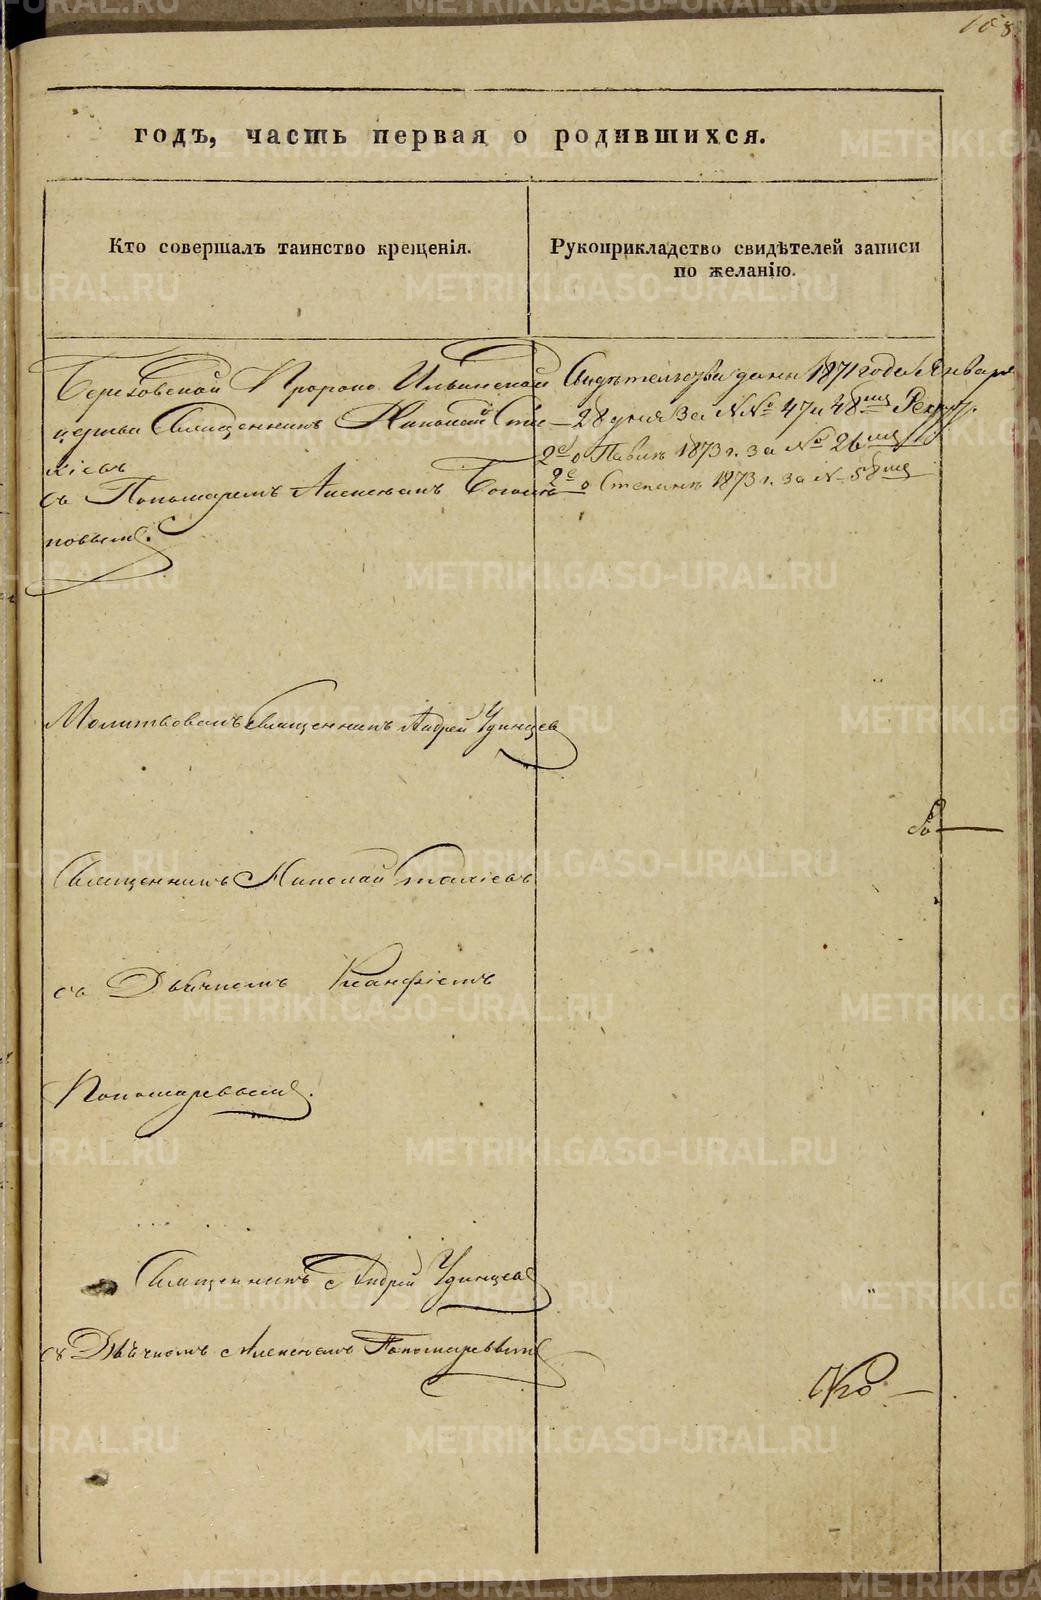 годъ, часть первая о родившихся.
Кто совершалъ таинство крещенія.
Рукоприкладство свидѣтелей записи
по желанію.
Березовской Пророко Ильинской
церкви Священникъ Николай Ста-
кіевъ
съ Пономаремъ Алексѣемъ
повымъ.
Свидѣтельства даны 1871 года Января
28 дня за №№ 47 и 48мъ
2е о Павлѣ 1873 г. за № 26мъ
2е о Степанѣ 1873 г. за № 58мъ
Молитвовалъ Священникъ Андрей Удинцев
Священникъ Николай
съ Дьячкомъ Ксанфіемъ
Пономаревымъ.
Священникъ Андрей Удинцев
съ Дьячкомъ Алексѣемъ Пономаревымъ
METRIKI.GASO-URAL.RU